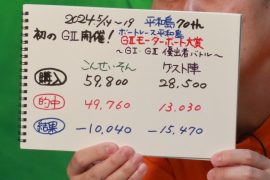 2024 5/14〜19 平和島70th
初のGⅡ開催！ ボートレース平和島
GⅡモーターボート大賞
〜GⅠ・GⅡ優出者バトル〜
こんせいそん ゲスト陣
購入 59,800 28,500
的中 49,760 13,030
結果 -10,040 -15,470